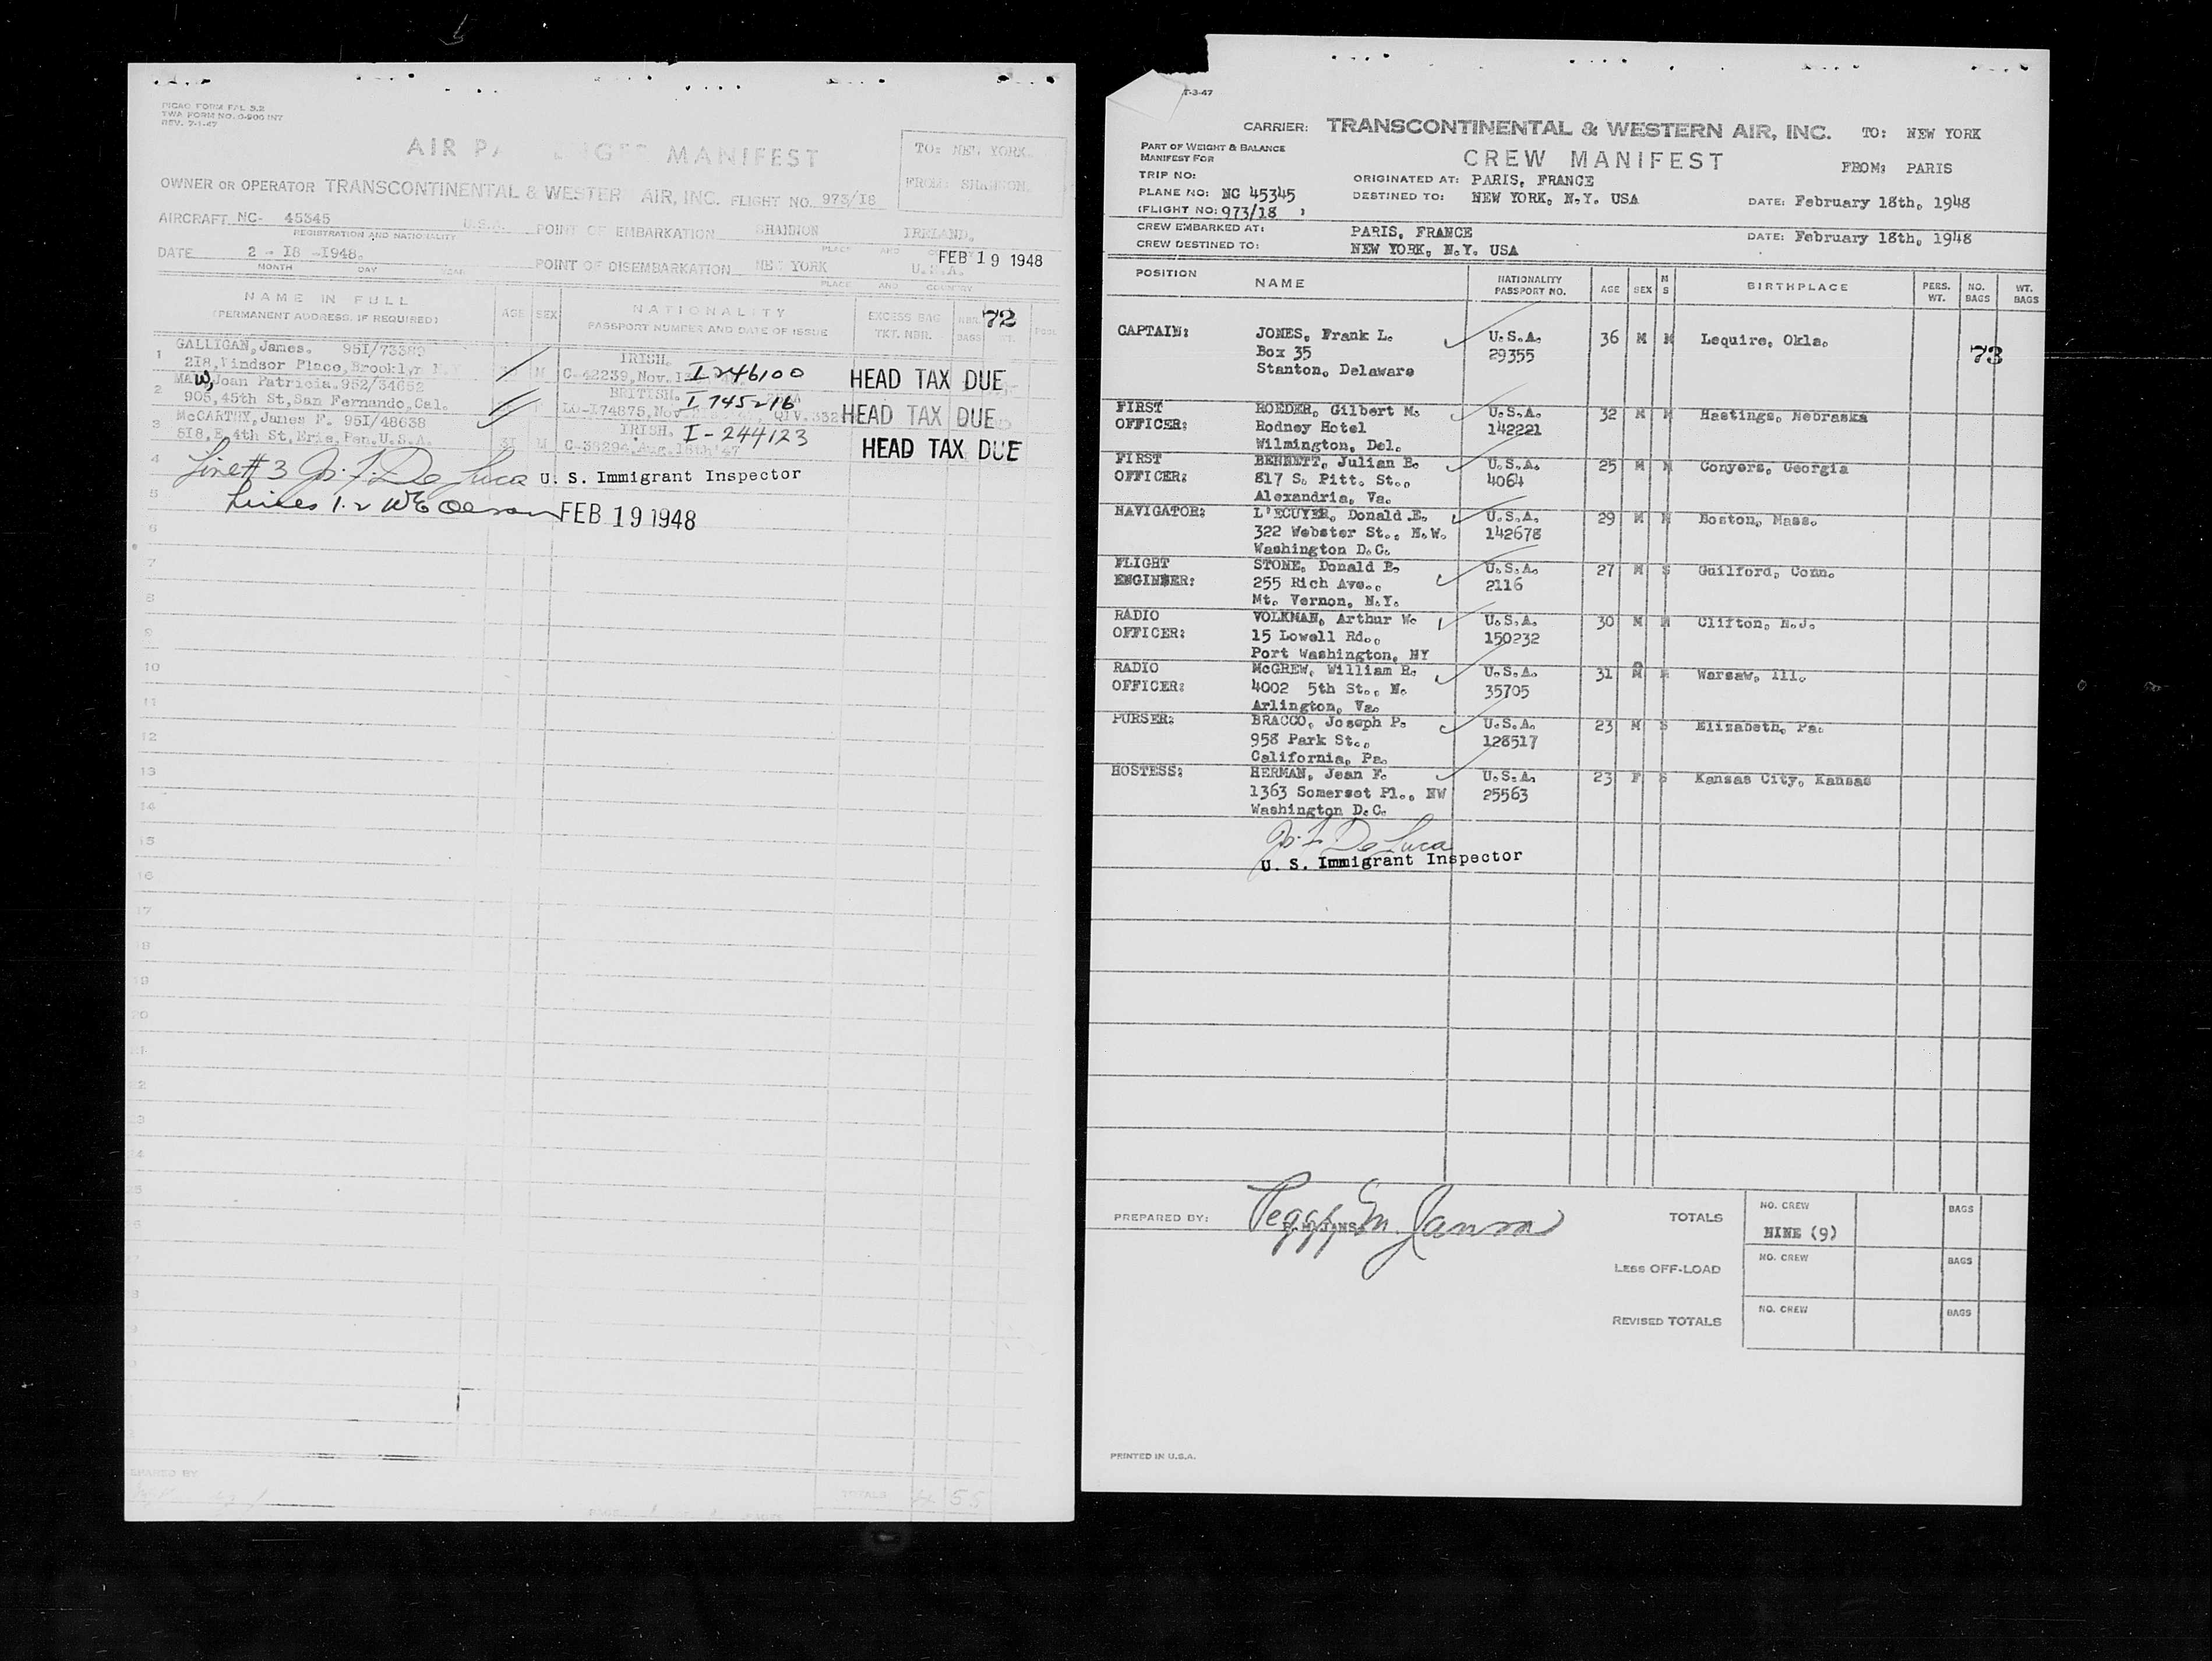 PICAO FORM FAL 5.2
TWA FORM NO. 0-900 INT
REV. 7-1-47
AIR PA ENGE MANIFEST
TO: NEW YORK.
FROM: SHANNON.
OWNER OR OPERATOR TRANSCONTINENTAL & WESTER AIR, INC. FLIGHT NO. 973/I8
AIRCRAFT NC- 45345 U.S.A. POINT OF EMBARKATION SHANNON IRELAND.
REGISTRATION AND NATIONALITY PLACE AND
DATE 2 - I8 -I948. POINT OF DISEMBARKATION NEW YORK U.S.A.
FEB 19 1948
MONTH DAY YEAR PLACE AND COUNTRY
NAME IN FULL
(PERMANENT ADDRESS, IF REQUIRED)
AGE SEX
NATIONALITY
PASSPORT NUMBER AND DATE OF ISSUE
EXCESS BAG
TKT. NBR.
NBR.
BAGS
72
1 GALLIGAN, James. 95I/73385 IRISH.
2I8, Windsor Place, Brooklyn N.Y M C-42239, Nov. I3 I246100 HEAD TAX DUE
2 MAW, Joan Patricia. 952/34652 BRITISH.
905, 45th St, San Fernando, Cal. F LO-I74875, Nov. I745216 QIV. 332 HEAD TAX DUE
3 McCARTHY, James F. 95I/48638 IRISH. I-244123
5I8, E 4th St, Erie, Pen. U.S.A. 3I M C-38294, Aug. I8th'47 HEAD TAX DUE
4 Line # 3 Jos. F. De Luca U. S. Immigrant Inspector
5 Lines 1.2 FEB 19 1948
6
7
8
9
10
11
12
13
14
15
16
17
18
19
20
21
22
23
24
25
PREPARED BY
TOTALS
T-3-47
CARRIER: TRANSCONTINENTAL & WESTERN AIR, INC. TO: NEW YORK
PART OF WEIGHT & BALANCE
MANIFEST FOR
CREW MANIFEST FROM: PARIS
TRIP NO: ORIGINATED AT: PARIS, FRANCE
PLANE NO: NC 45345 DESTINED TO: NEW YORK, N.Y. USA DATE: February 18th, 1948
(FLIGHT NO: 973/18 )
CREW EMBARKED AT: PARIS, FRANCE DATE: February 18th, 1948
CREW DESTINED TO: NEW YORK, N.Y. USA
POSITION NAME NATIONALITY PASSPORT NO. AGE SEX M S BIRTHPLACE PERS. WT. NO. BAGS WT. BAGS
CAPTAIN: JONES, Frank L. U.S.A. 36 M M Lequire, Okla.
Box 35 29355 73
Stanton, Delaware
FIRST ROEDER, Gilbert M. U.S.A. 32 M M Hastings, Nebraska
OFFICER: Rodney Hotel 142221
Wilmington, Del.
FIRST BENNETT, Julian B. U.S.A. 25 M M Conyers, Georgia
OFFICER: 817 S. Pitt. St., 4064
Alexandria, Va.
NAVIGATOR: L'ECUYER, Donald E. U.S.A. 29 M M Boston, Mass.
322 Webster St., N.W. 142678
Washington D.C.
FLIGHT STONE, Donald B. U.S.A. 27 M S Guilford, Conn.
ENGINEER: 255 Rich Ave., 2116
Mt. Vernon, N.Y.
RADIO VOLKMAN, Arthur W. U.S.A. 30 M M Clifton, N.J.
OFFICER: 15 Lowell Rd., 150232
Port Washington, NY
RADIO McGREW, William R. U.S.A. 31 M M Warsaw, Ill.
OFFICER: 4002 5th St., N. 35705
Arlington, Va.
PURSER: BRACCO, Joseph P. U.S.A. 23 M S Elizabeth, Pa.
958 Park St., 128517
California, Pa.
HOSTESS: HERMAN, Jean F. U.S.A. 23 F S Kansas City, Kansas
1363 Somerset Pl., NW 25563
Washington D.C.
Jos. F. De Luca
U. S. Immigrant Inspector
PREPARED BY: Peggy M. Jansa
TOTALS NO. CREW BAGS
NINE (9)
LESS OFF-LOAD NO. CREW BAGS
REVISED TOTALS NO. CREW BAGS
PRINTED IN U.S.A.